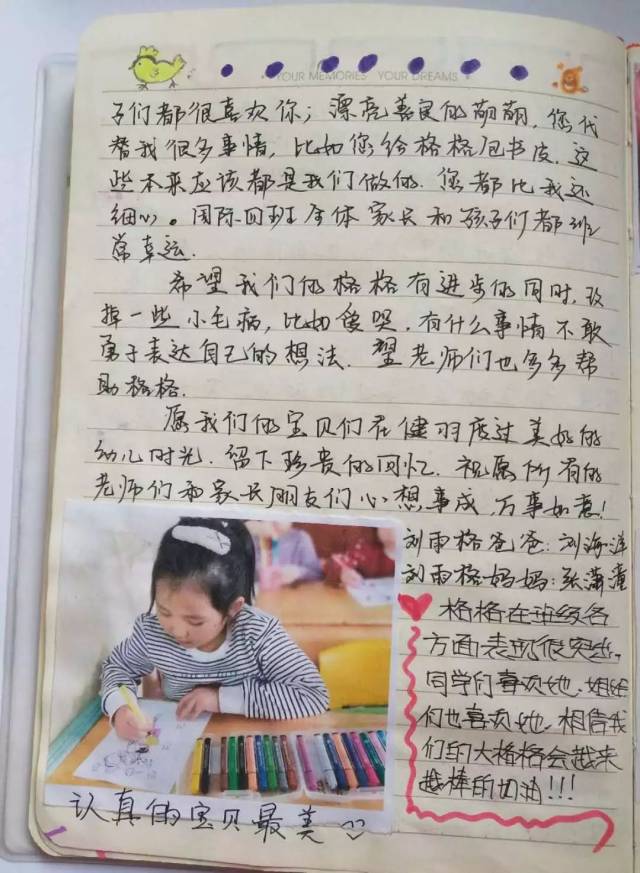 YOUR MEMORIES YOUR DREAMS
子们都很喜欢你；漂亮善良的萌萌，您代
替我很多事情，比如您给格格包书皮，这
些本来应该都是我们做的．您都比我还
细心。国际四班全体家长和孩子们都非
常幸运．
希望我们的格格有进步的同时，改
掉一些小毛病，比如爱哭．有什么事情不敢
勇于表达自己的想法．望老师们也多多帮
助格格．
愿我们的宝贝们在健羽度过美好的
幼儿时光．留下珍贵的回忆．祝愿所有的
老师们和家长朋友们心想事成，万事如意！
刘雨格爸爸：刘海洋
刘雨格妈妈：张潇潼
格格在班级各
方面表现很突出，
同学们喜欢她，姐姐
们也喜欢她，相信我
们的大格格会越来
越棒的加油!!!
认真的宝贝最美